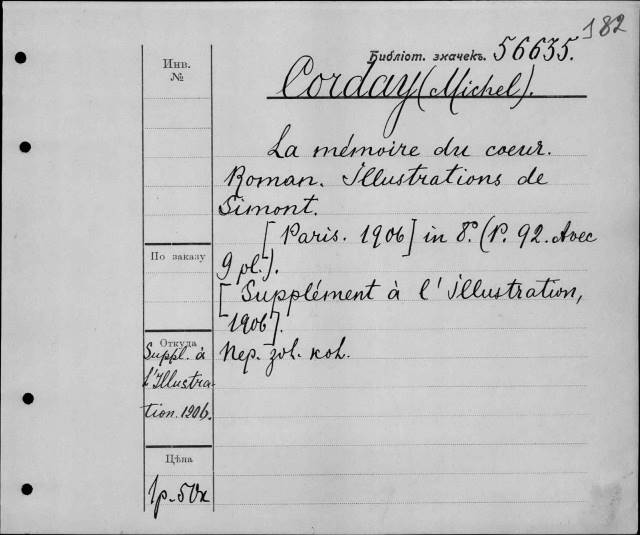 182
Библіот. значекъ. 56635.
Инв.
№
Corday (Michel).
La mémoire du coeur.
Roman. Illustrations de
Simont.
[Paris. 1906] in 8º. (P. 92. Avec
9 pl.).
[Supplément à l'Illustration,
1906].
По заказу
Откуда
Suppl. à
l'Illustra-
tion. 1906.
Пер. зол. кол.
Цѣна
1р.-50к